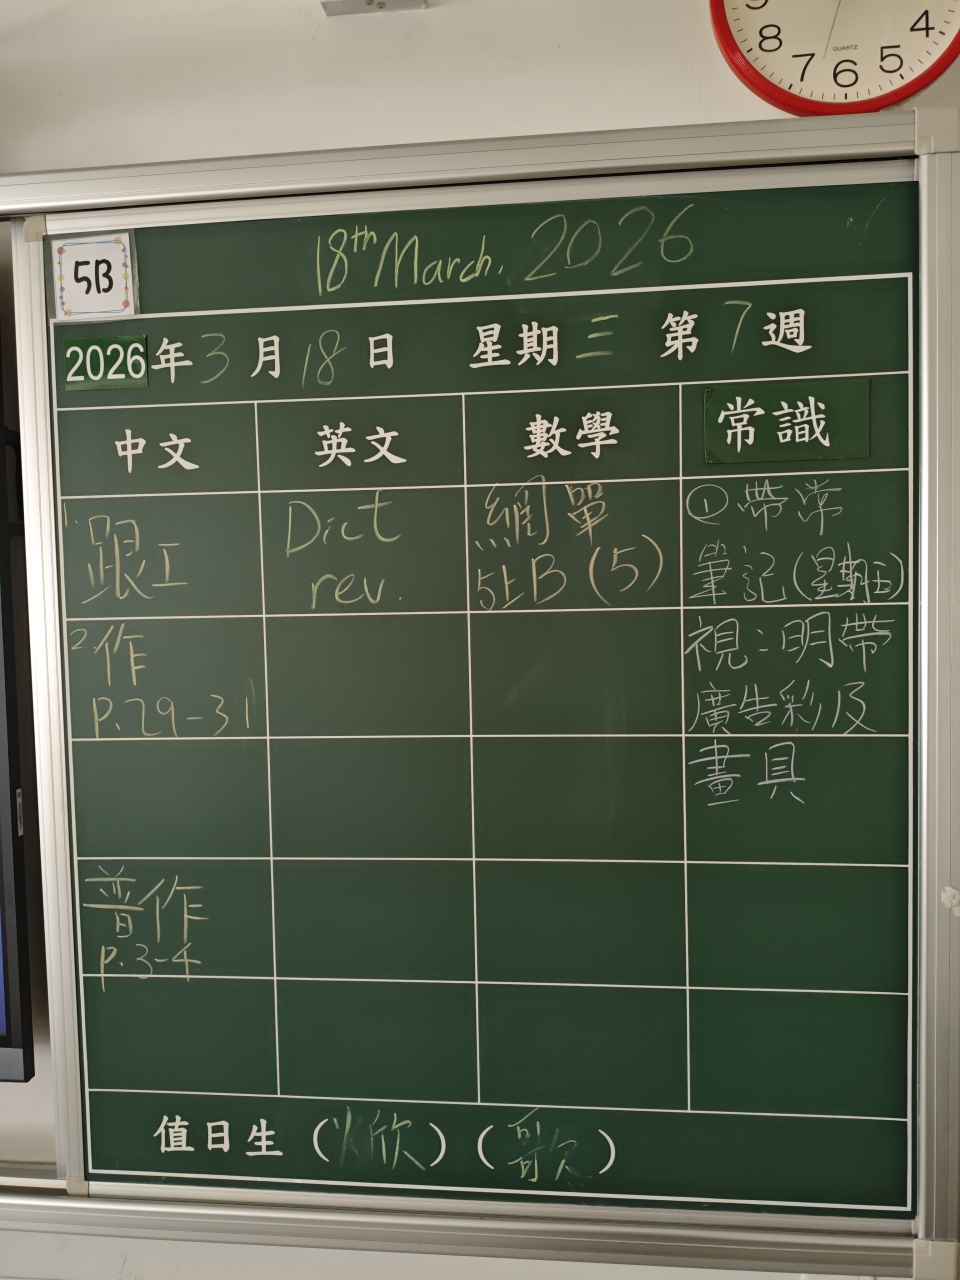 8 7 6 5 4
QUARTZ
5B
18th March. 2026
2026年3月18日 星期三 第7週
中文 英文 數學 常識
1. 跟工
Dict
rev.
網單
5上B(5)
① 帶常
筆記(星期五)
2. 作
P.29-31
視：明帶
廣告彩及
畫具
普作
P.3-4
值日生（欣）（歌）